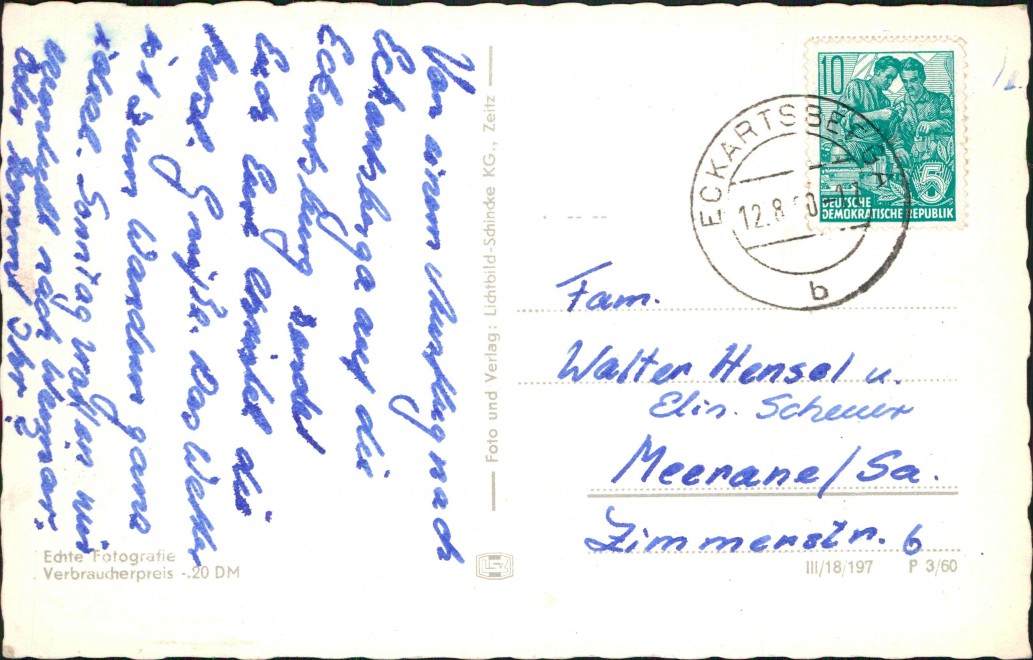 Von einem Ausflug nach
Eckartsberga auf die
Eckartsburg sendet
Euch
Grüße. Das Wetter
ist zum Wandern ganz
Sonntag wollen wir
nach
oder kommt Ihr?
Foto und Verlag: Lichtbild-Schincke KG., Zeitz
Echte Fotografie
Verbraucherpreis -.20 DM
10
5
DEUTSCHE
DEMOKRATISCHE REPUBLIK
ECKARTSBERGA
12.8.60
b
Fam.
Walter Hensel u.
Elis. Scheuer
Meerane/Sa.
Zimmerstr. 6
III/18/197 P 3/60